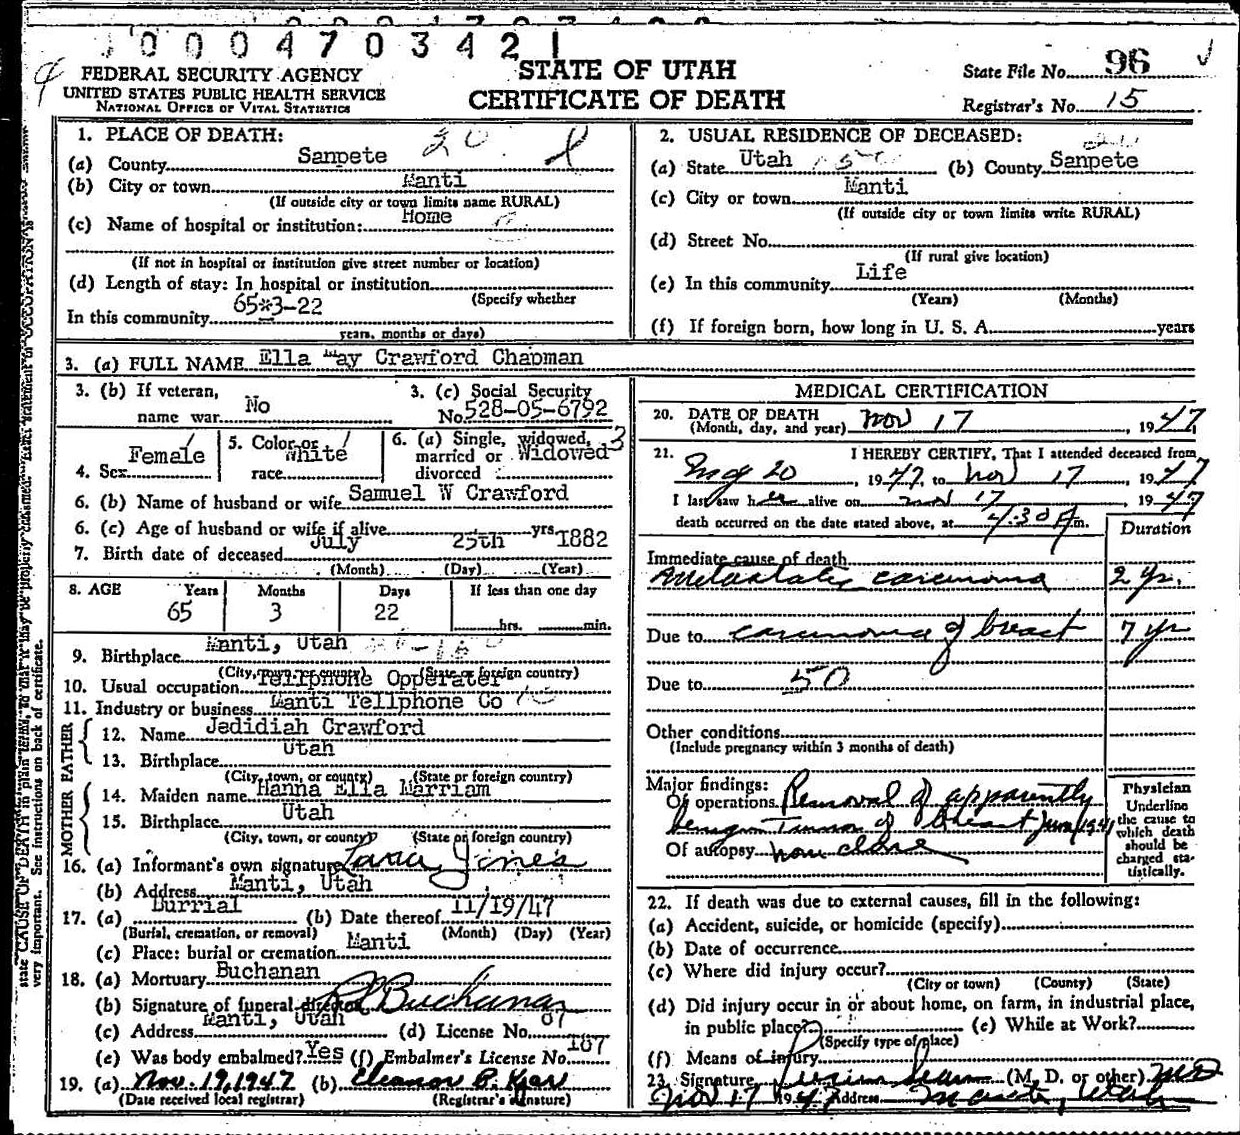 0004703421
FEDERAL SECURITY AGENCY
UNITED STATES PUBLIC HEALTH SERVICE
NATIONAL OFFICE OF VITAL STATISTICS
STATE OF UTAH
CERTIFICATE OF DEATH
State File No. 96
Registrar's No. 15
1. PLACE OF DEATH: 20
(a) County Sanpete
(b) City or town Manti
(If outside city or town limits name RURAL)
(c) Name of hospital or institution: Home
(If not in hospital or institution give street number or location)
(d) Length of stay: In hospital or institution
(Specify whether
In this community 65*3-22
years, months or days)
2. USUAL RESIDENCE OF DECEASED:
(a) State Utah (b) County Sanpete
(c) City or town Manti
(If outside city or town limits write RURAL)
(d) Street No.
(If rural give location)
(e) In this community Life
(Years) (Months)
(f) If foreign born, how long in U. S. A. years
3. (a) FULL NAME Ella May Crawford Chapman
3. (b) If veteran, name war No
3. (c) Social Security No. 528-05-6792
4. Sex Female
5. Color or race White
6. (a) Single, widowed, married or divorced Widowed 3
6. (b) Name of husband or wife Samuel W Crawford
6. (c) Age of husband or wife if alive yrs.
7. Birth date of deceased July 25th 1882
(Month) (Day) (Year)
8. AGE Years Months Days If less than one day
65 3 22 hrs. min.
9. Birthplace Manti, Utah
(City, town, or county) (State or foreign country)
10. Usual occupation Tellphone Opperater
11. Industry or business Manti Tellphone Co
FATHER
12. Name Jedidiah Crawford
13. Birthplace Utah
(City, town, or county) (State or foreign country)
MOTHER
14. Maiden name Hanna Ella Marriam
15. Birthplace Utah
(City, town, or county) (State or foreign country)
16. (a) Informant's own signature Jones
(b) Address Manti, Utah
17. (a) Burrial (b) Date thereof 11/19/47
(Burial, cremation, or removal) (Month) (Day) (Year)
(c) Place: burial or cremation Manti
18. (a) Mortuary Buchanan
(b) Signature of funeral director Buchanan
(c) Address Manti, Utah (d) License No. 67
(e) Was body embalmed? Yes (f) Embalmer's License No. 187
19. (a) Nov. 19, 1947 (b) Eleanor P.
(Date received local registrar) (Registrar's signature)
MEDICAL CERTIFICATION
20. DATE OF DEATH
(Month, day, and year) Nov 17, 1947
21. I HEREBY CERTIFY, That I attended deceased from
20 1947, to Nov 17, 1947
I last saw her alive on Nov 17 1947
death occurred on the date stated above, at 4:30 P m.
Duration
Immediate cause of death
Metastatic carcinoma 2 yr.
Due to carcinoma of breast 7 yr
Due to 50
Other conditions
(Include pregnancy within 3 months of death)
Major findings:
Of operations Removal of apparently
benign Tumor of breast June 1941
Of autopsy none done
Physician
Underline
the cause to
which death
should be
charged sta-
tistically.
22. If death was due to external causes, fill in the following:
(a) Accident, suicide, or homicide (specify)
(b) Date of occurrence
(c) Where did injury occur?
(City or town) (County) (State)
(d) Did injury occur in or about home, on farm, in industrial place,
in public place? (e) While at Work?
(Specify type of place)
(f) Means of injury
23. Signature (M. D. or other) MD
Nov 17 1947 Address Manti, Utah
state CAUSE OF DEATH in plain terms, so that it may be properly classified. Exact statement of OCCUPATION is
very important. See instructions on back of certificate.